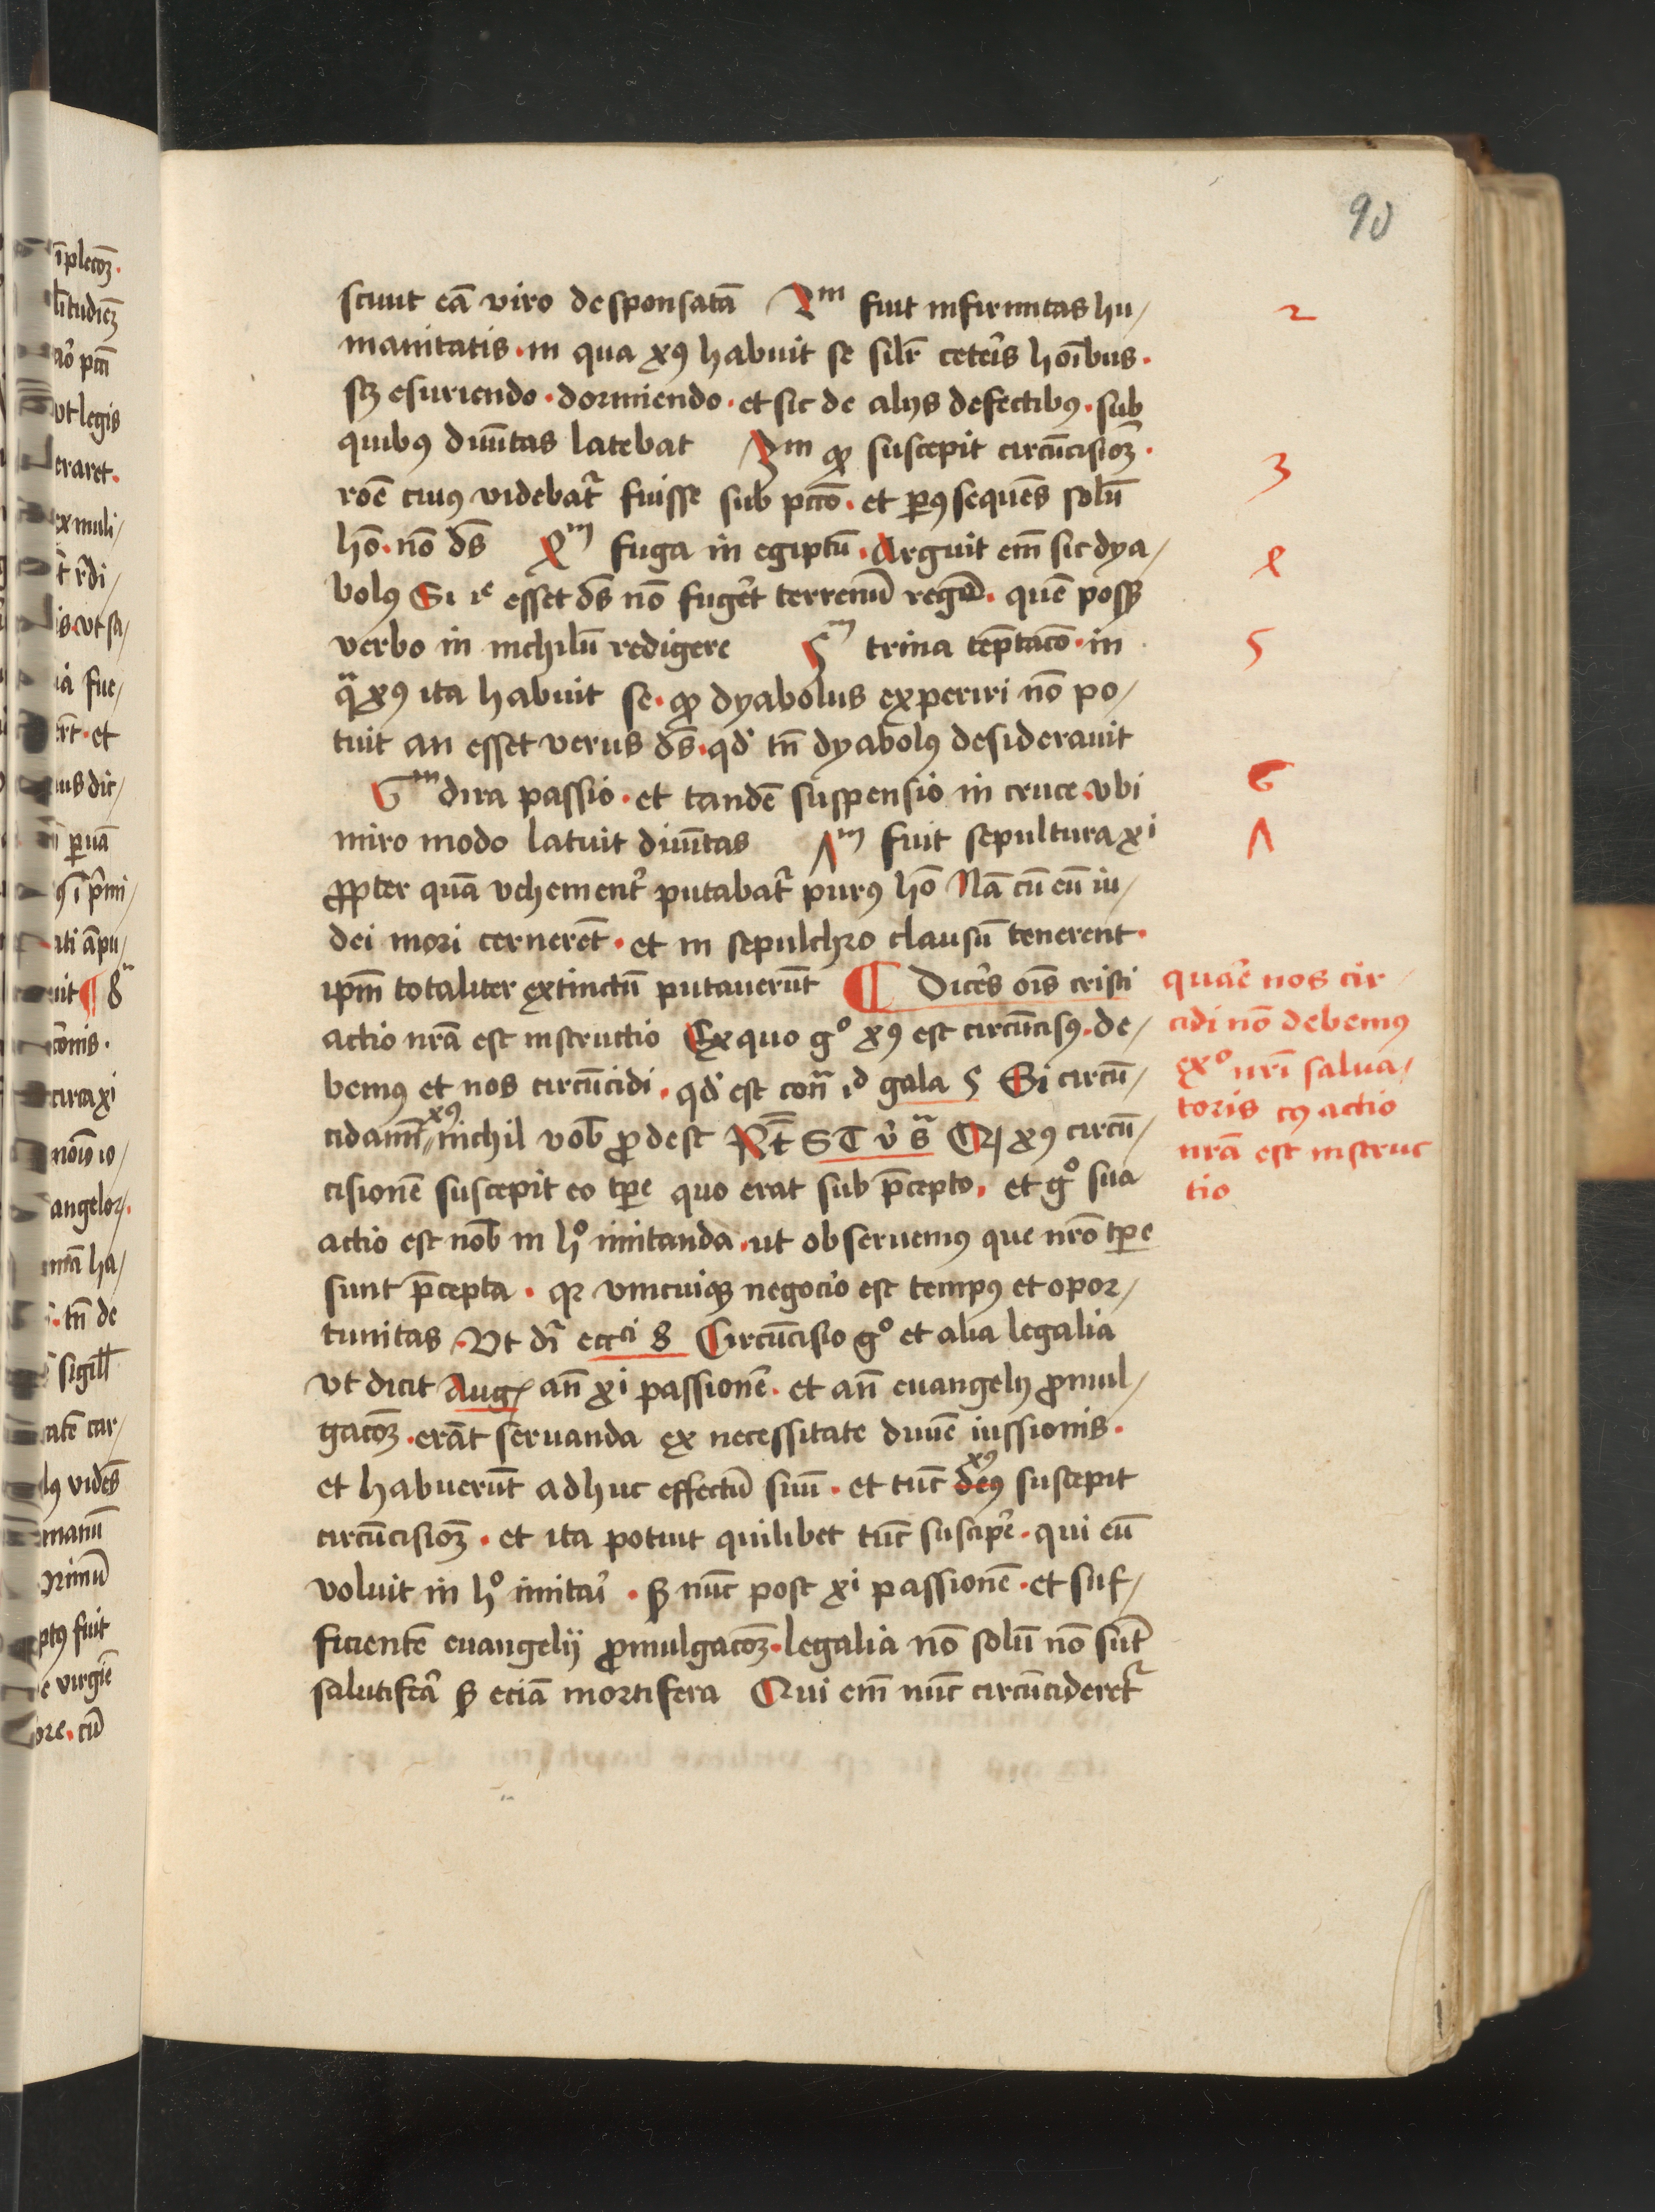 90
sciuit eā viro desponsatā 2m fuit infirmitas hu/
manitatis · in qua xꝯ habuit se silr̄ ceteris hoībus ·
sꝫ esuriendo · dormiendo · et sic de alijs defectibꝯ · sub
quibꝯ diuītas latebat 3m ꝙ suscepit circūcisioꝫ ·
roē cuiꝯ videbat᷑ fuisse sub pctō · et p̄ꝯ sequēs solū
hō · nō ds̄ 4m fuga in egiptū · Arguit em̄ sic dya/
bolꝯ Si ie esset ds̄ nō fuget̄ terrenū regē · quē posꝫ
verbo in nichilū redigere 5m trina tēptacō · in
qͣ xꝯ ita habuit se · ꝙ dyabolus experiri nō po/
tuit an esset verus ds̄ · qd̄ tn̄ dyabolꝯ desiderauit
6m dira passio · et tandē suspensio in cruce · vbi
miro modo latuit diuītas 7m fuit sepultura xi
ꝓpter quā vehement᷑ putabat᷑ purꝯ hō Nā cū eū iu/
dei mori cernerēt · et in sepulchro clausū tenerent ·
ipm̄ totaliter extinctū putauerūt ¶ Dices ois̄ cristi
actio nrā est instructio Ex quo gͦ xꝯ est circūcisꝯ · de/
bemꝯ et nos circūcidi · qd̄ est conͣ id gala 5 Si circū/
cidam̄ xꝯ nichil vob̄ ꝓdest Rt̄ S T v̄ sͣ Qꝛ xꝯ circū/
cisionē suscepit eo tp̄e quo erat sub p̄cepto · et gͦ sua
actio est nob̄ in hͦ imitanda · ut obseruemꝯ que nrō tp̄e
sunt p̄cepta · qꝛ vnicuiqꝫ negocio est tempꝯ et opor/
tunitas · Vt dr̄ ecci 8 Circūcisio gͦ et alia legalia
vt dicit Augꝰ an̄ xi passionē · et an̄ euangelij ꝓmul/
gacōꝫ · erāt seruanda ex necessitate diuīe iussionis ·
et habuerūt adhuc effectū suū · et tūc deꝯ xꝯ suscepit
circūcisioꝫ · et ita potuit quilibet tūc suscipe᷑ · qui eū
voluit in hͦ imitai᷑ · sꝫ nūc post xi passionē · et suf/
ficientē euangelij ꝓmulgacōꝫ · legalia nō solū nō sūt
salutifea᷑ sꝫ eciā mortifera Qui em̄ nūc circūcideret᷑
2
3
4
5
6
7
quae᷑ nos cir
cidi nō debemꝯ
exͦ nrī salua/
toris cꝯ actio
nrā est instruc
tio